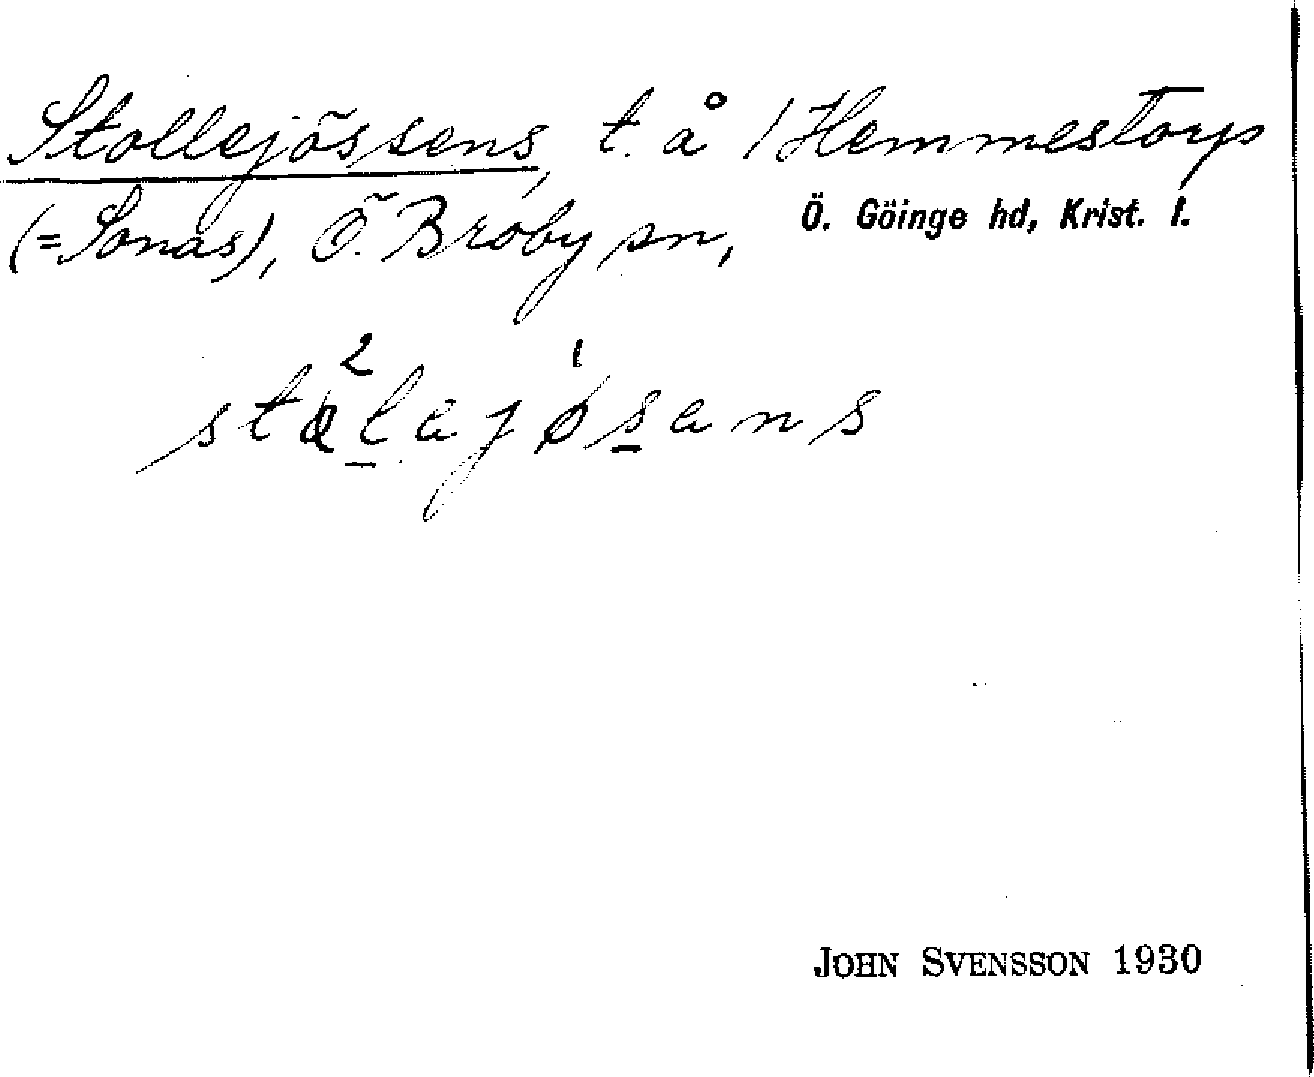 Stollejössens, t. å 1 Hemmestorp
(=Sonas), Ö. Broby sn, Ö. Göinge hd, Krist. l.
JOHN SVENSSON 1930